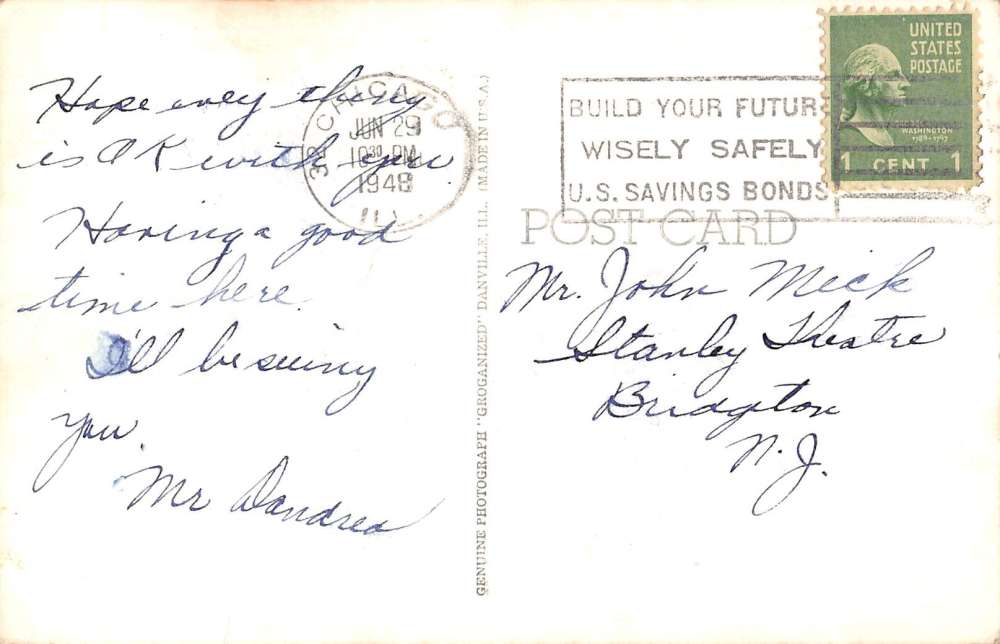 Hope every thing
is O K with you.
Having a good
time here.
I'll be seeing
you.
Mr Dandrea
CHICAGO
JUN 29
10 30 PM
1948
ILL
GENUINE PHOTOGRAPH "GROGANIZED" DANVILLE, ILL. (MADE IN U.S.A.)
BUILD YOUR FUTUR
WISELY SAFELY
U.S. SAVINGS BONDS
UNITED
STATES
POSTAGE
WASHINGTON
1789-1797
1 CENT 1
POST CARD
Mr. John Mick
Stanley Theatre
Bridgton
N. J.